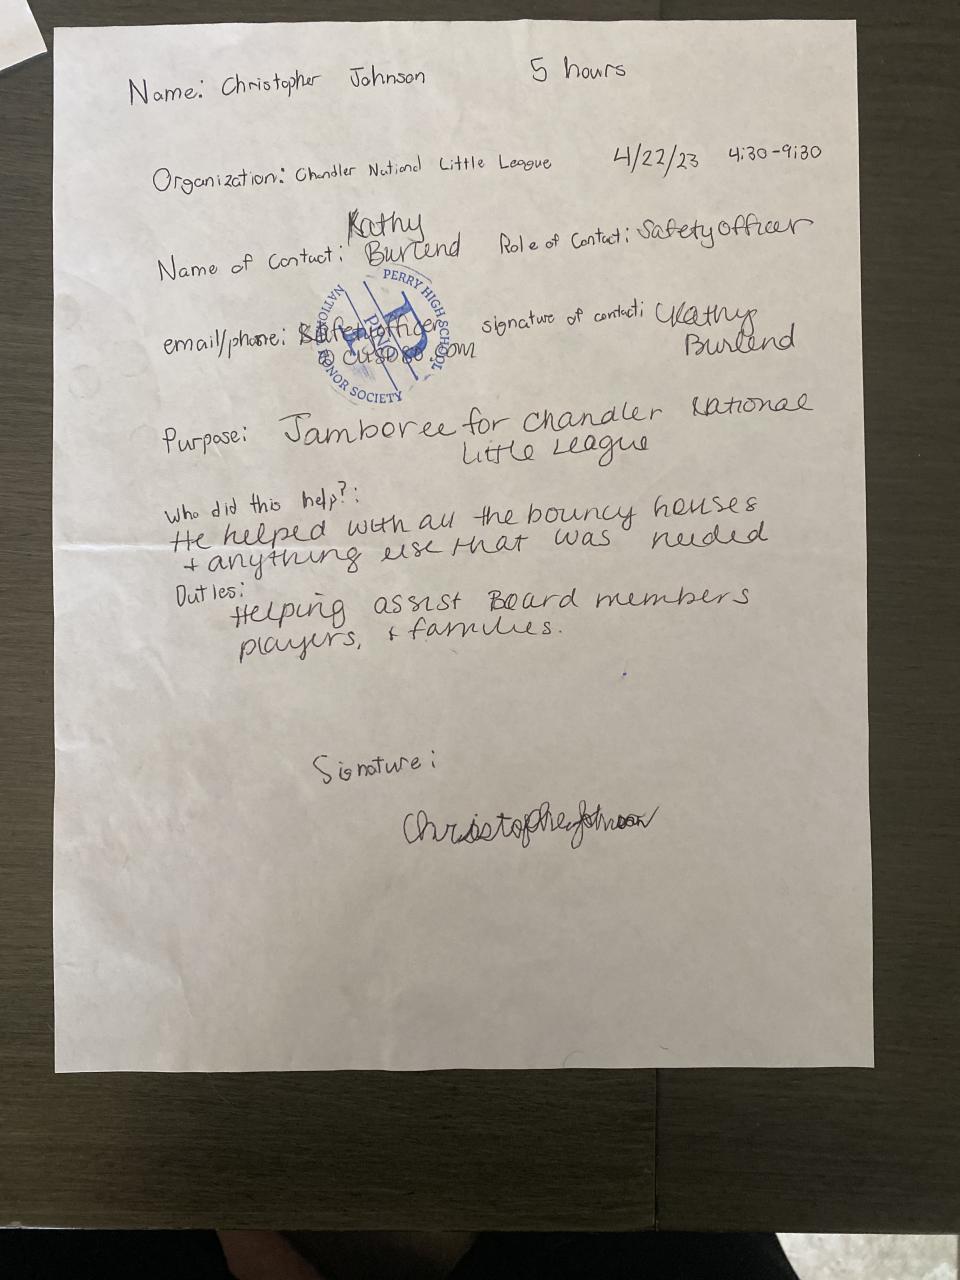 Name: Christopher Johnson 5 hours
Organization: Chandler National Little League 4/22/23 4:30-9:30
Kathy
Name of Contact: Burlend Role of Contact: Safety officer
PERRY HIGH SCHOOL
NATIONAL HONOR SOCIETY
email/phone: Safetyofficer signature of contact: Kathy
.com Burlend
Purpose: Jamboree for Chandler National
Little League
Who did this help?:
He helped with all the bouncy houses
+ anything else that was needed
Duties:
Helping assist Board members
players, + families.
Signature:
Christopher Johnson